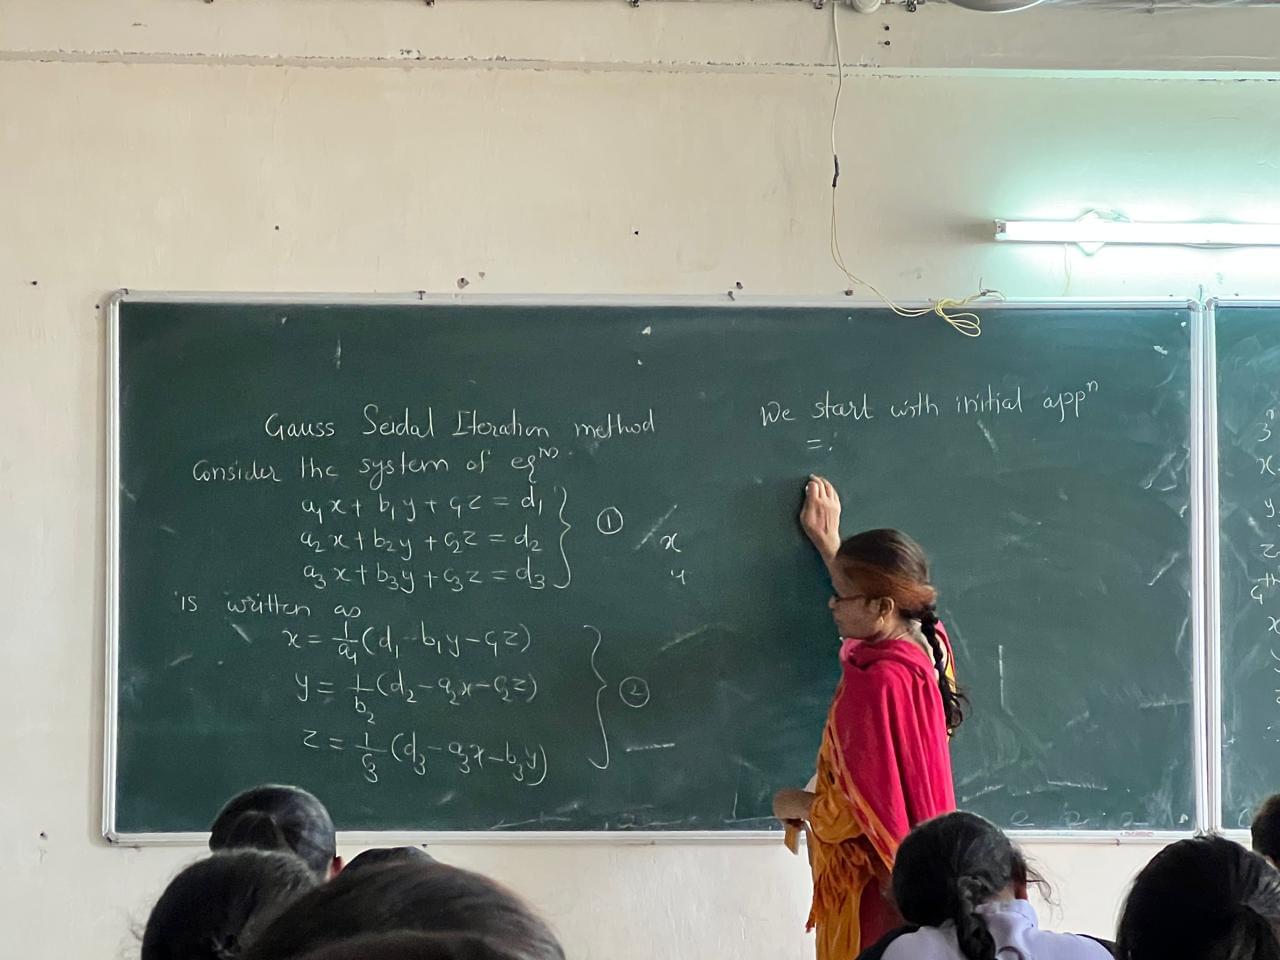 Gauss Seidal Iteration method
Consider the system of eqⁿˢ.
a₁x + b₁y + c₁z = d₁
a₂x + b₂y + c₂z = d₂
a₃x + b₃y + c₃z = d₃
①
is written as
x = 1/a₁ (d₁ - b₁y - c₁z)
y = 1/b₂ (d₂ - a₂x - c₂z)
z = 1/c₃ (d₃ - a₃x - b₃y)
②
x
y
We start with initial appⁿ
=: